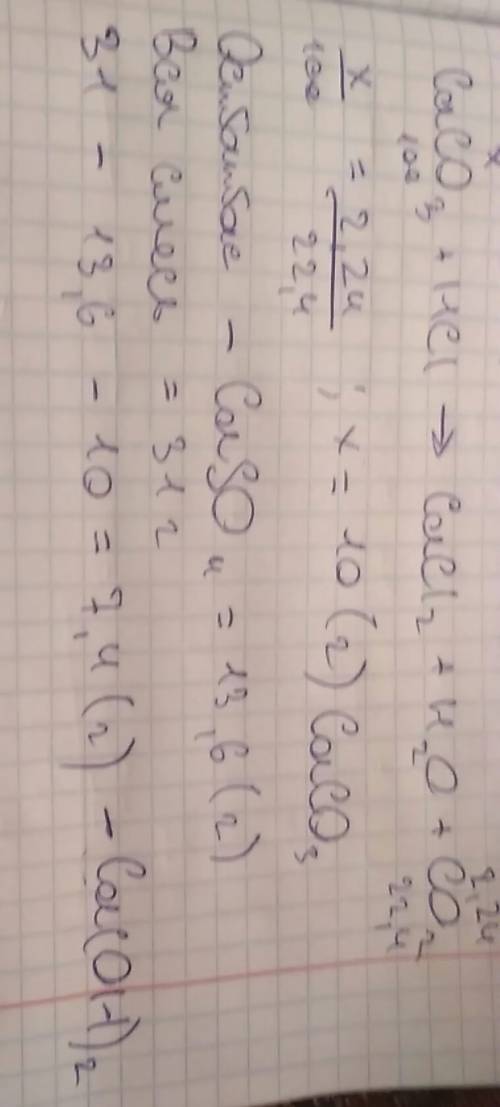 x 2,24
CaCO3 + HCl → CaCl2 + H2O + CO2
100 22,4
x/100 = 2,24/22,4 ; x = 10 (г) CaCO3
– CaSO4 = 13,6 (г)
Вся смесь = 31 г
31 – 13,6 – 10 = 7,4 (г) – Ca(OH)2